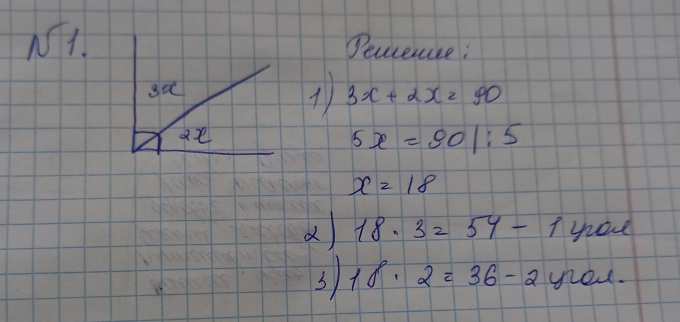 N1.
3x
2x
Решение:
1) 3x + 2x = 90
5x = 90 |: 5
x = 18
2) 18 · 3 = 54 - 1 угол
3) 18 · 2 = 36 - 2 угол.